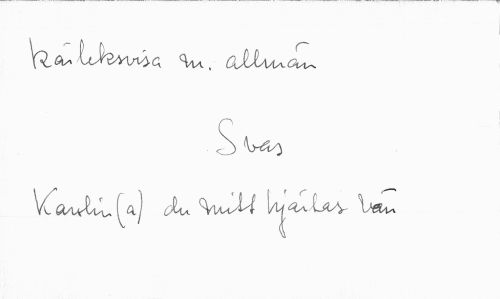 Kärleksvisa m. allmän
Svar
Karolin(a) du mitt hjärtas vän